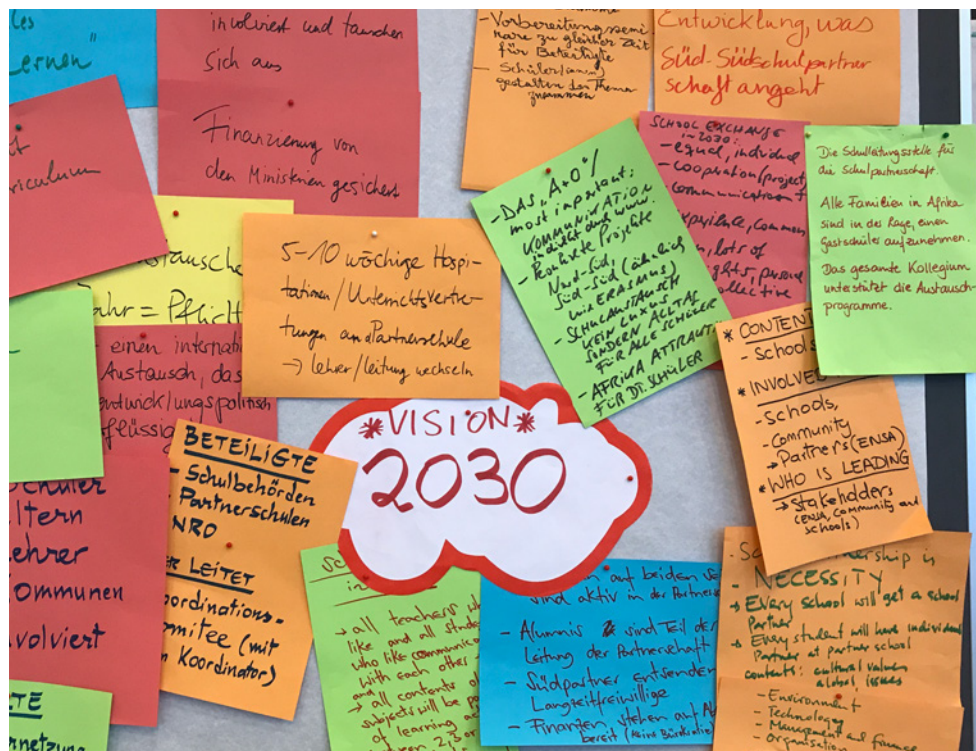 les
Lernen"
involviert und tauschen
sich aus
Finanzierung von
den Ministerien gesichert
- Vorbereitungssemi
nare zu gleicher Zeit
für Beteiligte
- Schüler(innen)
gestalten das Thema
zusammen
Entwicklung, was
Süd-Südschulpartner
schaft angeht
SCHOOL EXCHANGE
in 2030:
- equal, individual
- cooperation/project
- communication
lots of
Die Schulleitungsstelle für
die Schulpartnerschaft.
Alle Familien in Afrika
sind in der Lage, einen
Gastschüler aufzunehmen.
Das gesamte Kollegium
unterstützt die Austausch-
programme.
- DAS "A+O"/
most important:
KOMMUNIKATION
- Konkrete Projekte
Nord-Süd,
Süd-Süd (ähnlich
wie ERASMUS)
- SCHULAUSTAUSCH
KEIN LUXUS
SONDERN ALLTAG
FÜR ALLE SCHÜLER
- AFRIKA ATTRAKTIV
FÜR DT. SCHÜLER
riculum
tausche
Jahr = Pflicht
5-10 wöchige Hospi-
tationen/Unterrichtsvertre-
tungen an Partnerschule
→ Lehrer/leitung wechseln
einen internati
Austausch, das
entwicklungspolitisch
flüssig
* CONTENT
- Schools
* INVOLVED
- Schools,
- Community
→ Partners (ENSA)
* WHO IS LEADING
→ Stakeholders
(ENSA, Community and
schools)
*VISION*
2030
BETEILIGTE
- Schulbehörden
- Partnerschulen
NRO
ER LEITET
oordinations-
omitee (mit
Koordinator)
Schüler
ltern
ehrer
ommunen
nvolviert
TE
netzung
in
→ all teachers wh
like and all stude
who like communica
with each other
and
→ all contents of
subjects will be pa
of learning a
auf beiden Se
sind aktiv in der Partners
- Alumnis sind Teil der
Leitung der Partnerschaft
- Südpartner entsenden
Langzeitfreiwillige
- Finanzen stehen auf A
bereit (keine Bürokratie)
nership is
NECESSITY
→ Every school will get a school
Partner
→ Every student will have individual
Partner at partner school
contents: cultural values
global issues
- Environment
- Technology
- Management and finance
- Organisation